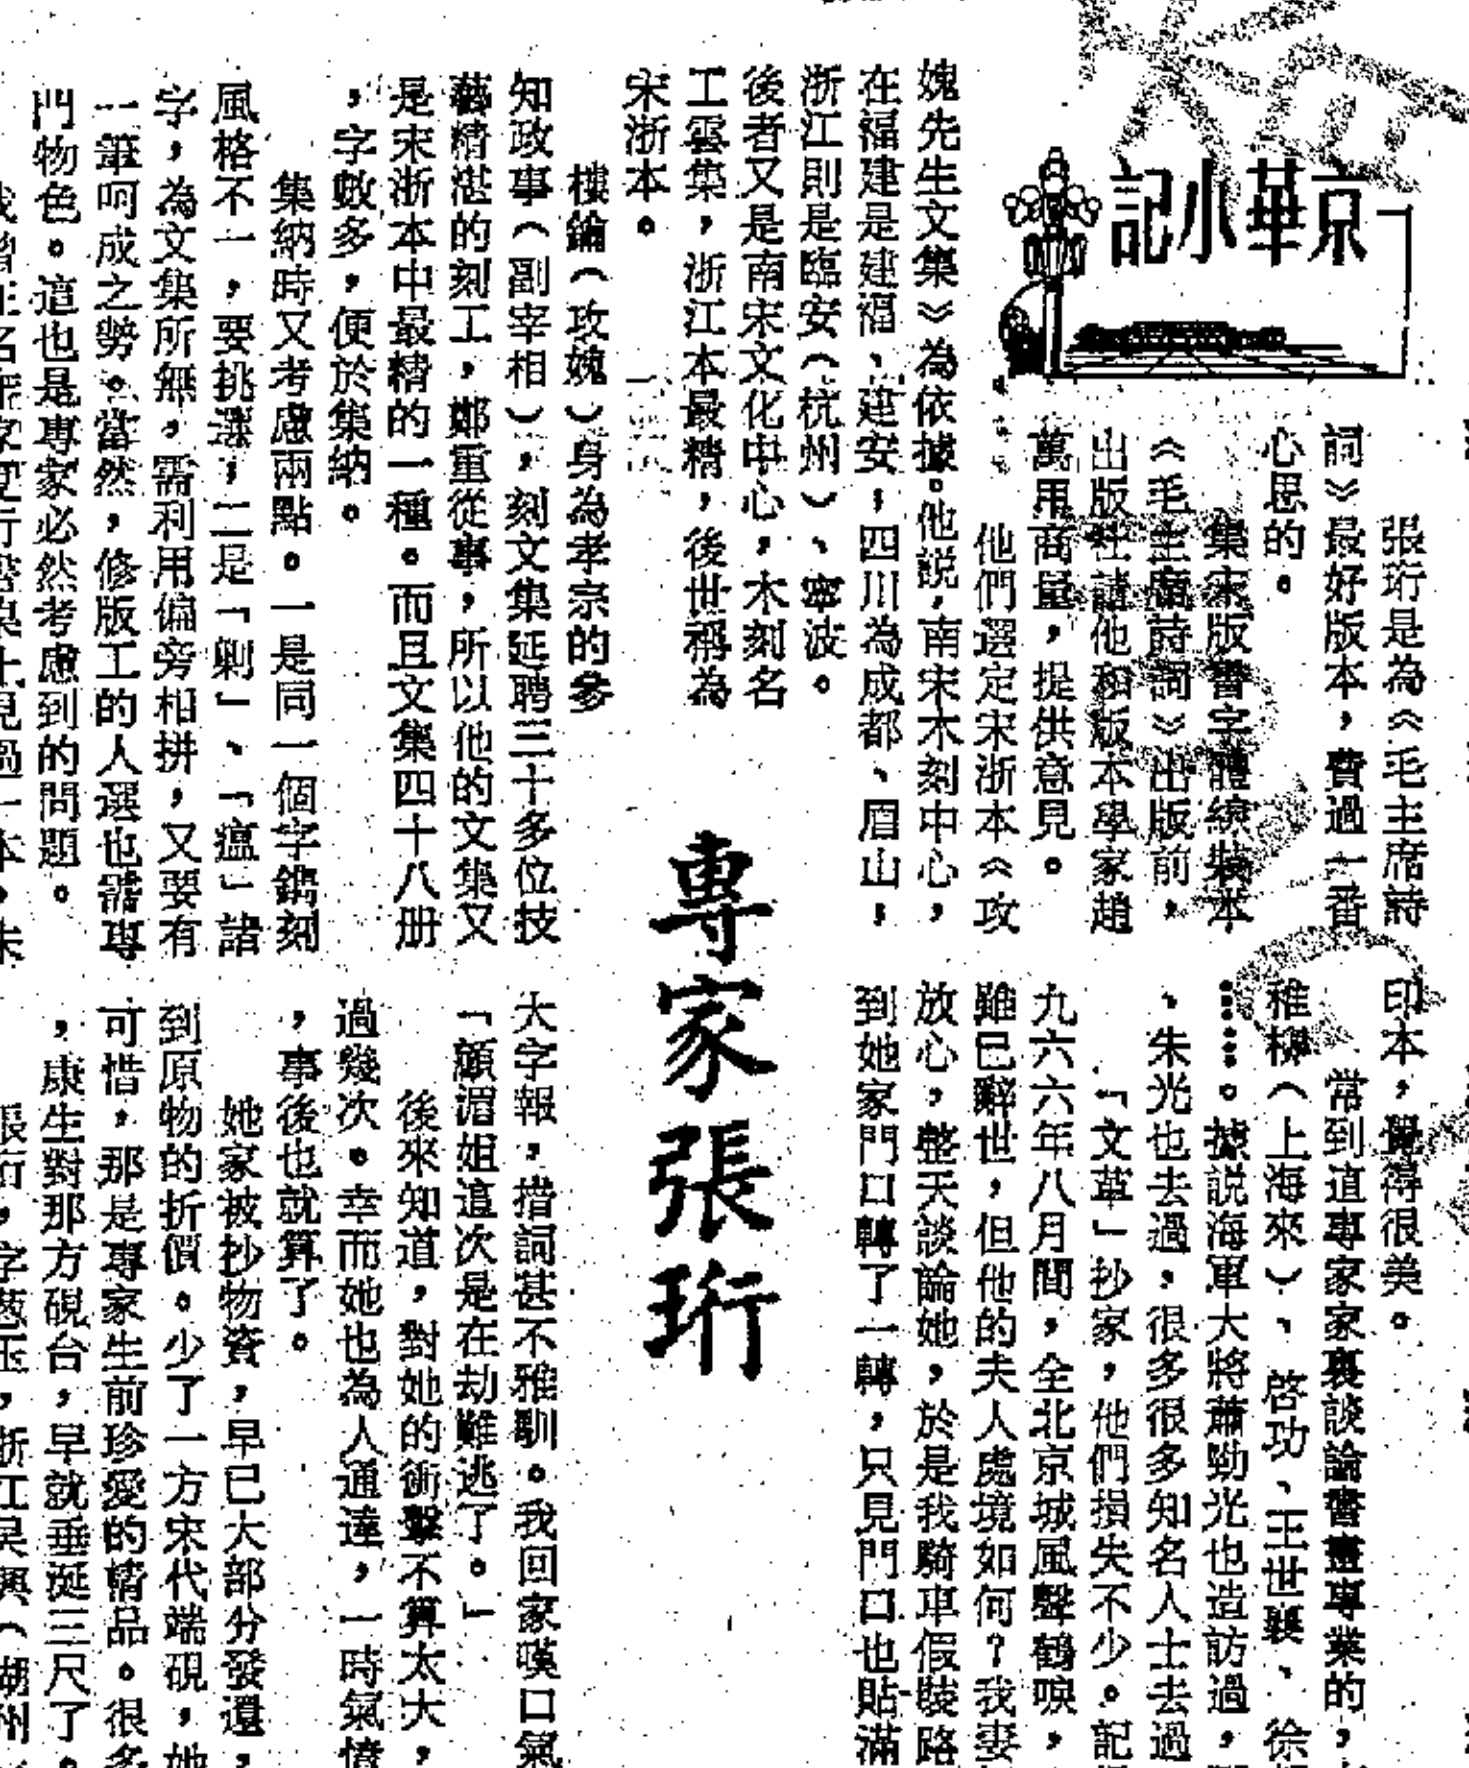 京華小記
專家張珩
張珩是為《毛主席詩
詞》最好版本，費過一番
心思的。
集宋版書字體線裝本
《毛主席詩詞》出版前，
出版社請他和版本學家趙
萬用商量，提供意見。
他們選定宋浙本《攻
媿先生文集》為依據。他説，南宋木刻中心，
在福建是建福、建安；四川為成都、眉山，
浙江則是臨安（杭州）、寧波。
後者又是南宋文化中心，木刻名
工雲集，浙江本最精，後世稱為
宋浙本。
樓鑰（攻媿）身為孝宗的參
知政事（副宰相），刻文集延聘三十多位技
藝精湛的刻工，鄭重從事，所以他的文集又
是宋浙本中最精的一種。而且文集四十八册
，字數多，便於集納。
集納時又考慮兩點。一是同一個字鐫刻
風格不一，要挑選；二是「剿」、「瘟」諸
字，為文集所無，需利用偏旁相拼，又要有
一筆呵成之勢。當然，修版工的人選也需專
門物色。這也是專家必然考慮到的問題。
印本，覺得很美。
常到這專家家裏談論書畫專業的，
稚柳（上海來）、啓功、王世襄、徐
……。據説海軍大將蕭勁光也造訪過，
、朱光也去過，很多很多知名人士去過
「文革」抄家，他們損失不少。記
九六六年八月間，全北京城風聲鶴唳，
雖已辭世，但他的夫人處境如何？我妻
放心，整天談論她，於是我騎車假裝路
到她家門口轉了一轉，只見門口也貼滿
大字報，措詞甚不雅馴。我回家嘆口氣
「顧湄姐這次是在劫難逃了。」
後來知道，對她的衝擊不算太大，
過幾次。幸而她也為人通達，一時氣憤
，事後也就算了。
她家被抄物資，早已大部分發還，
到原物的折價。少了一方宋代端硯，她
可惜，那是專家生前珍愛的精品。很多
，康生對那方硯台，早就垂涎三尺了。